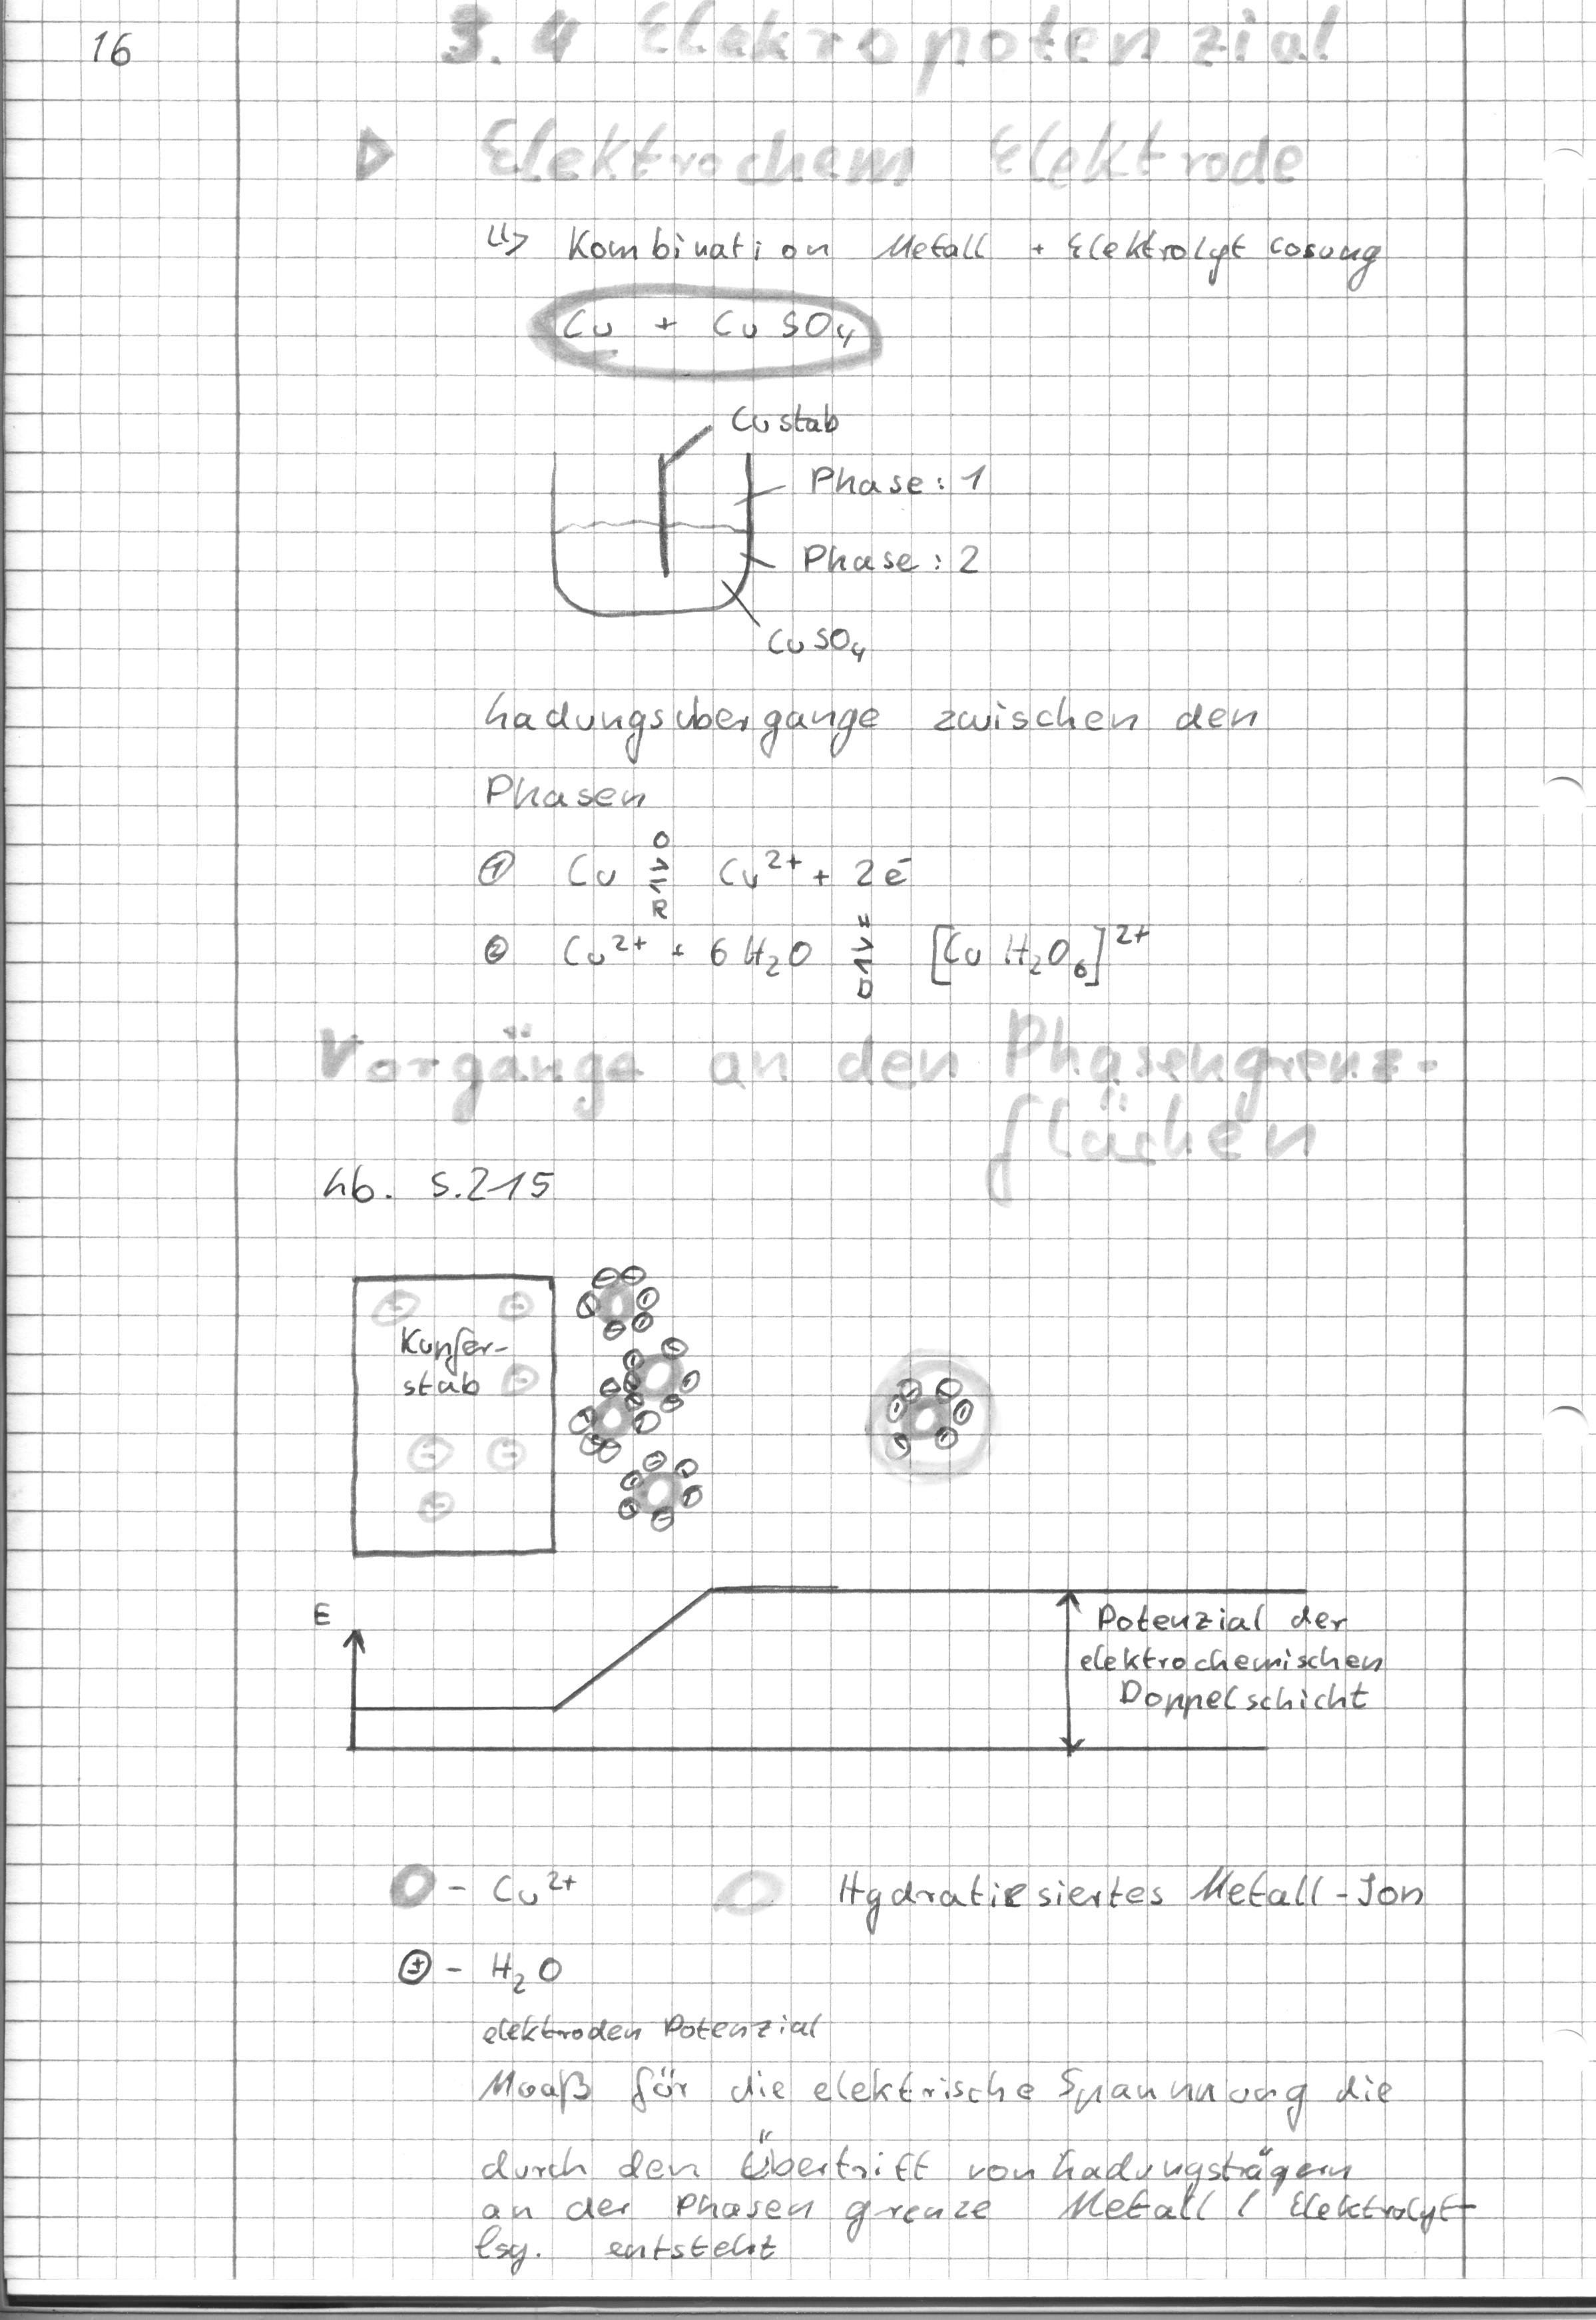 16
3.4 Elekropotenzial
▷ Elektrochem Elektrode
↳> Kombination Metall + Elektrolyt Losung
Cu + CuSO₄
Custab
Phase: 1
Phase: 2
CuSO₄
Ladungsubergange zwischen den
Phasen
① Cu ⇌ Cu²⁺ + 2e⁻
O
R
② Cu²⁺ + 6H₂O ⇌ [Cu H₂O₆]²⁺
H
D
Vorgänge an den Phasengrenz-
flächen
Lb. S.215
Kupfer-
stab
E
Potenzial der
elektrochemischen
Doppelschicht
- Cu²⁺ Hydratisiertes Metall-Ion
- H₂O
elektroden Potenzial
Maaß für die elektrische Spannung die
durch den Übertritt von Ladungsträgern
an der Phasen grenze Metall / Elektrolyt
lsg. entsteht